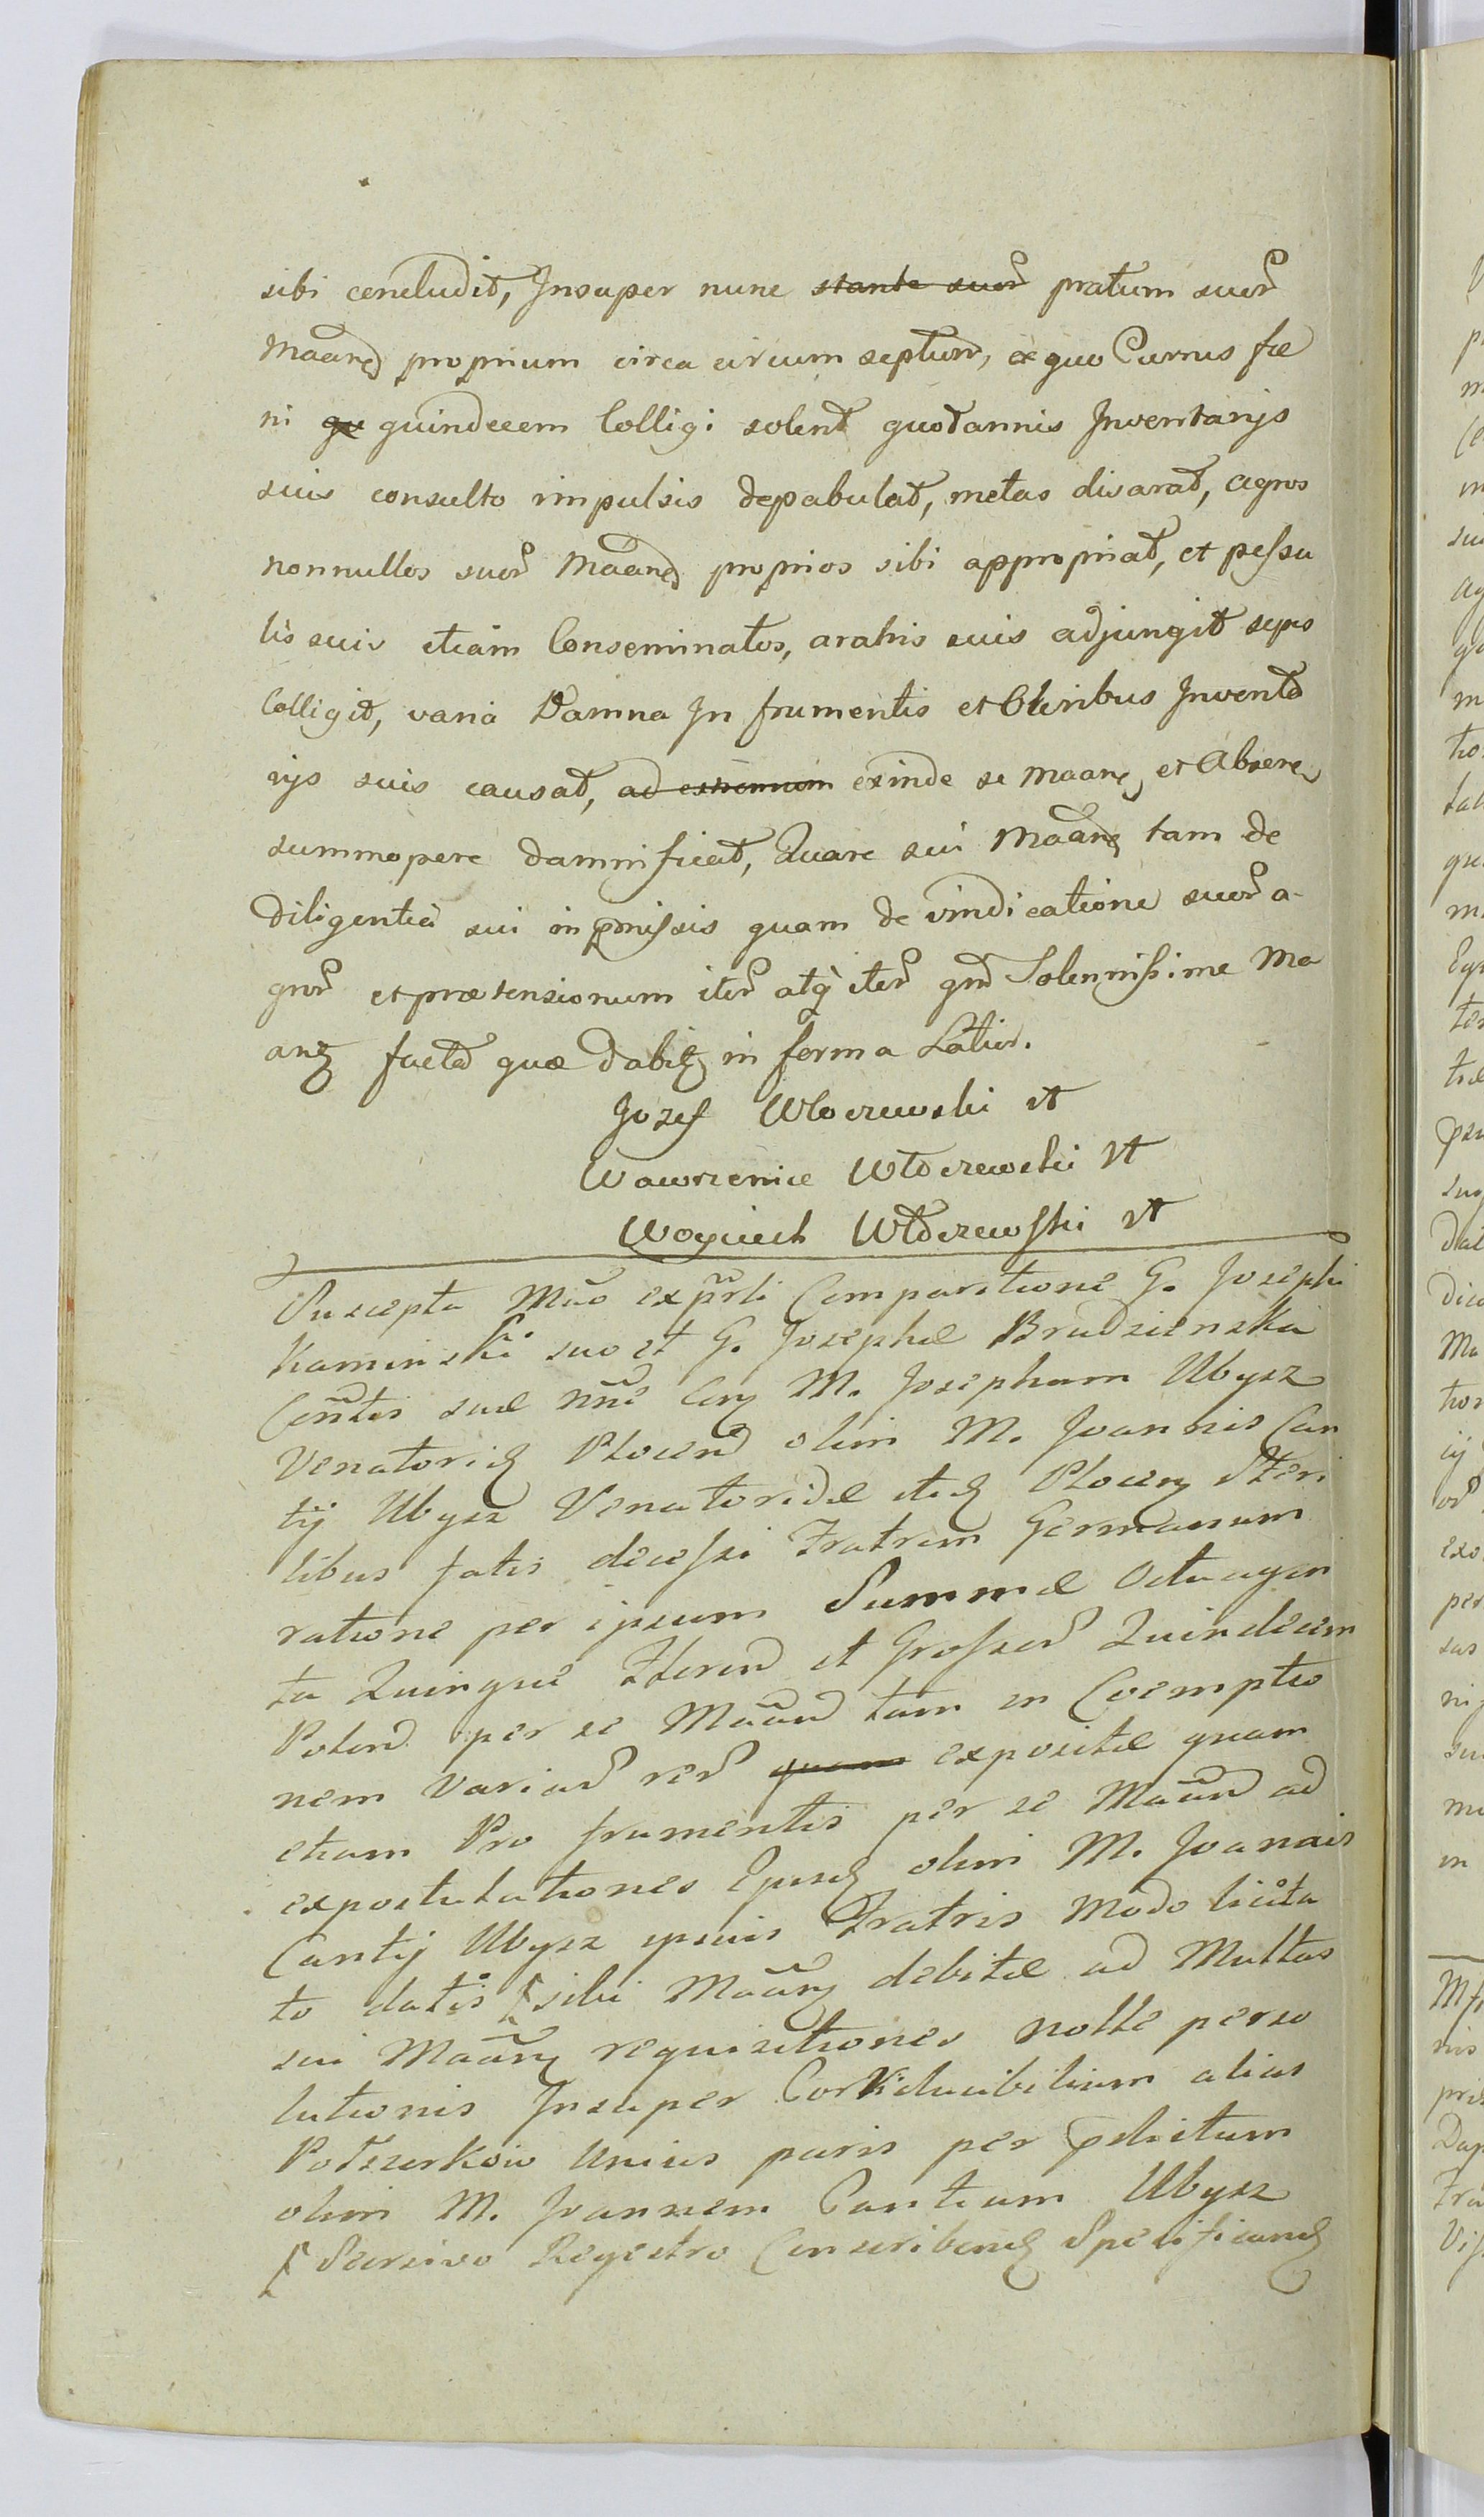 sibi concludit, Insuper nunc stante suor pratum suor
Maanem proprium circa circum septum, ex quo Currus fæ
ni qu quindecem Colligi solent quotannis Inventarijs
suis consulto impulsis depabulat, metas disarat, agros
nonnullos suor Maanem proprios sibi appropriat, et pessu
lis suis etiam Conseminatos, aratris suis adjungit sepes
Colligit, varia Damna In frumentis et Oleribus Inventa
rijs suis causat, ad exinde se Maane et
summopere damnificat, Quare sui Maane tam de
diligentia sui in pmissis quam de vindicatione suor a-
gror et prætensionum iter atq iter gnd Solennissime Ma
ane facta quæ dabit in forma Latior.
Jozef Włoczewski st
Wawrzeniec Włoczewski st
Woyciech Włoczewski st
Suscepta Mae exprli Comparitione G. Josephi
Kaminski suo et G. Josephæ Brudzienska
Contis suæ nne Con M. Josephum Ubysz
Venatorid Plocen olim M. Joannis Can
tij Ubysz Venatoridæ itid Plocen Steri
libus fatis decessi Fratrem Germanum
ratione per ipsum Summæ Octuagin
ta Quinque Floren et Grosser Quindecem
Polon per se Maand tam in Coemptio
nem variar rer quam expositæ quam
etiam Pro frumentis per se Maand ad
expostulationes Ejusd olim M. Joannis
Cantij Ubysz ipsius Fratris Modo licita
to datis sibi Maane debitæ ad Multas
sui Maane requisitiones nolle perso
lutionis Insuper Corviducibilium alias
Połszorkow Unius paris per pdictum
olim M. Joannem Cantium Ubysz
Seorsivo Regestro Conscribend Specificand